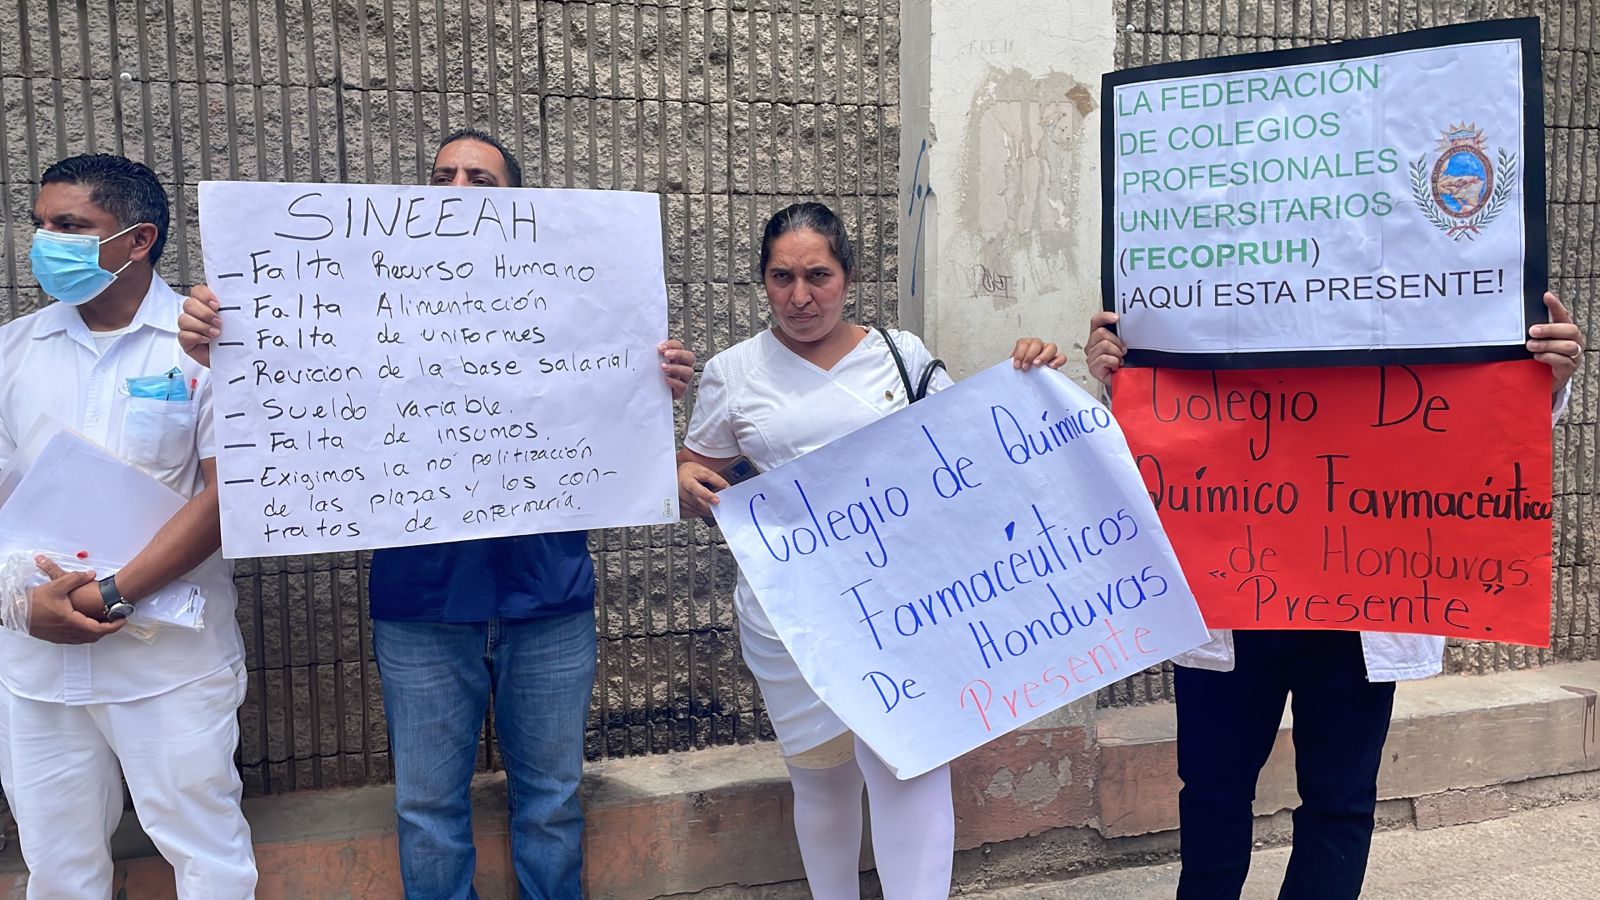 SINEEAH
- Falta Recurso Humano
- Falta Alimentación
- Falta de uniformes
- Revicion de la base salarial.
- Sueldo variable.
- Falta de insumos.
- Exigimos la no politización
de las plazas y los con-
tratos de enfermería.
Colegio de Químico
Farmacéuticos
De Honduras
Presente
LA FEDERACIÓN
DE COLEGIOS
PROFESIONALES
UNIVERSITARIOS
(FECOPRUH)
¡AQUÍ ESTA PRESENTE!
Colegio De
Químico Farmacéutico
de Honduras
"Presente".